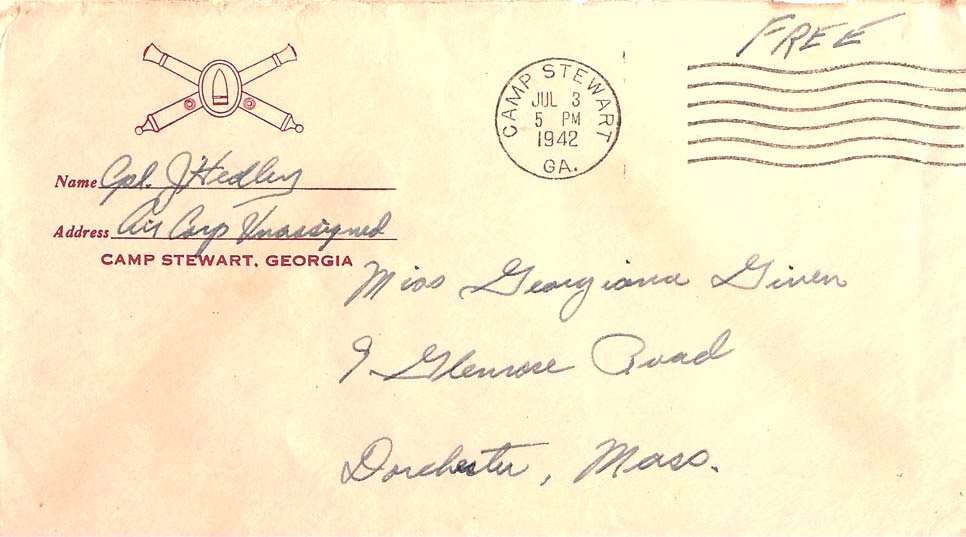 FREE
CAMP STEWART
JUL 3
5 PM
1942
GA.
Name Cpl. J. Hedley
Address Air Corp Unassigned
CAMP STEWART, GEORGIA
Miss Georgiana Given
9 Glenrose Road
Dorchester, Mass.